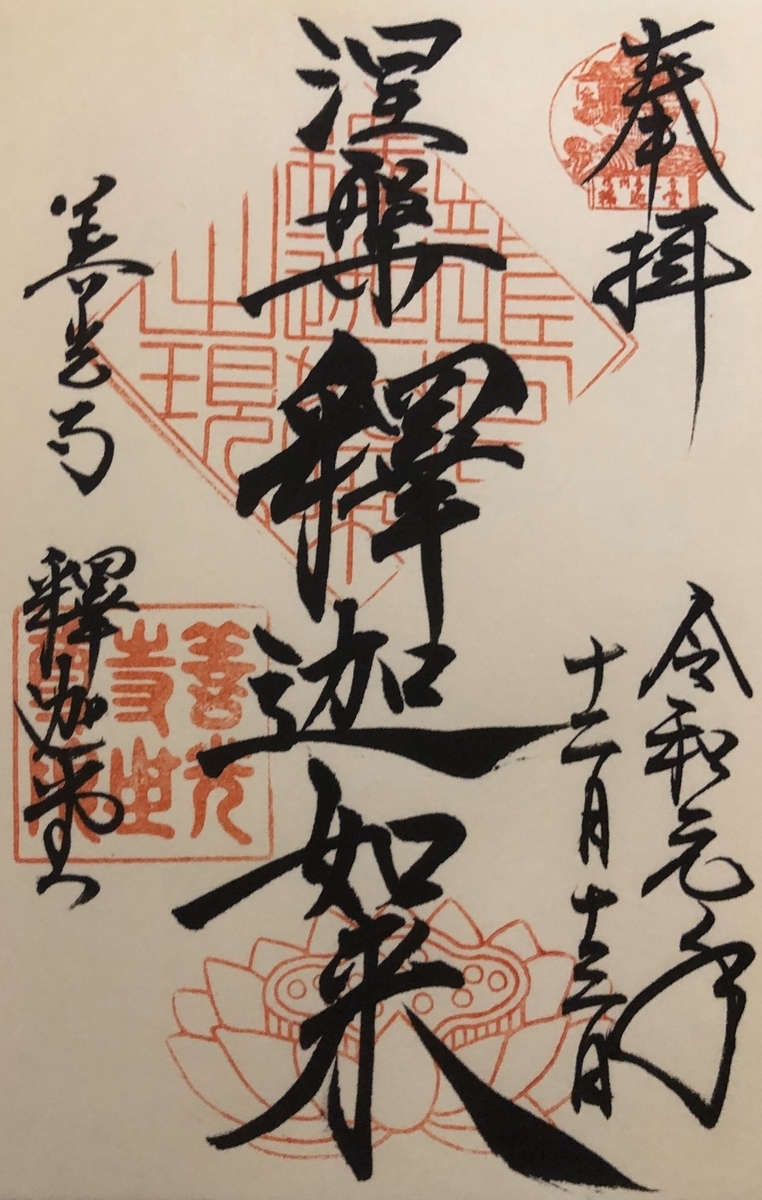 奉拝
令和元年
十二月十三日
涅槃釋迦如来
善光寺 釋迦堂
善光
寺世
尊院